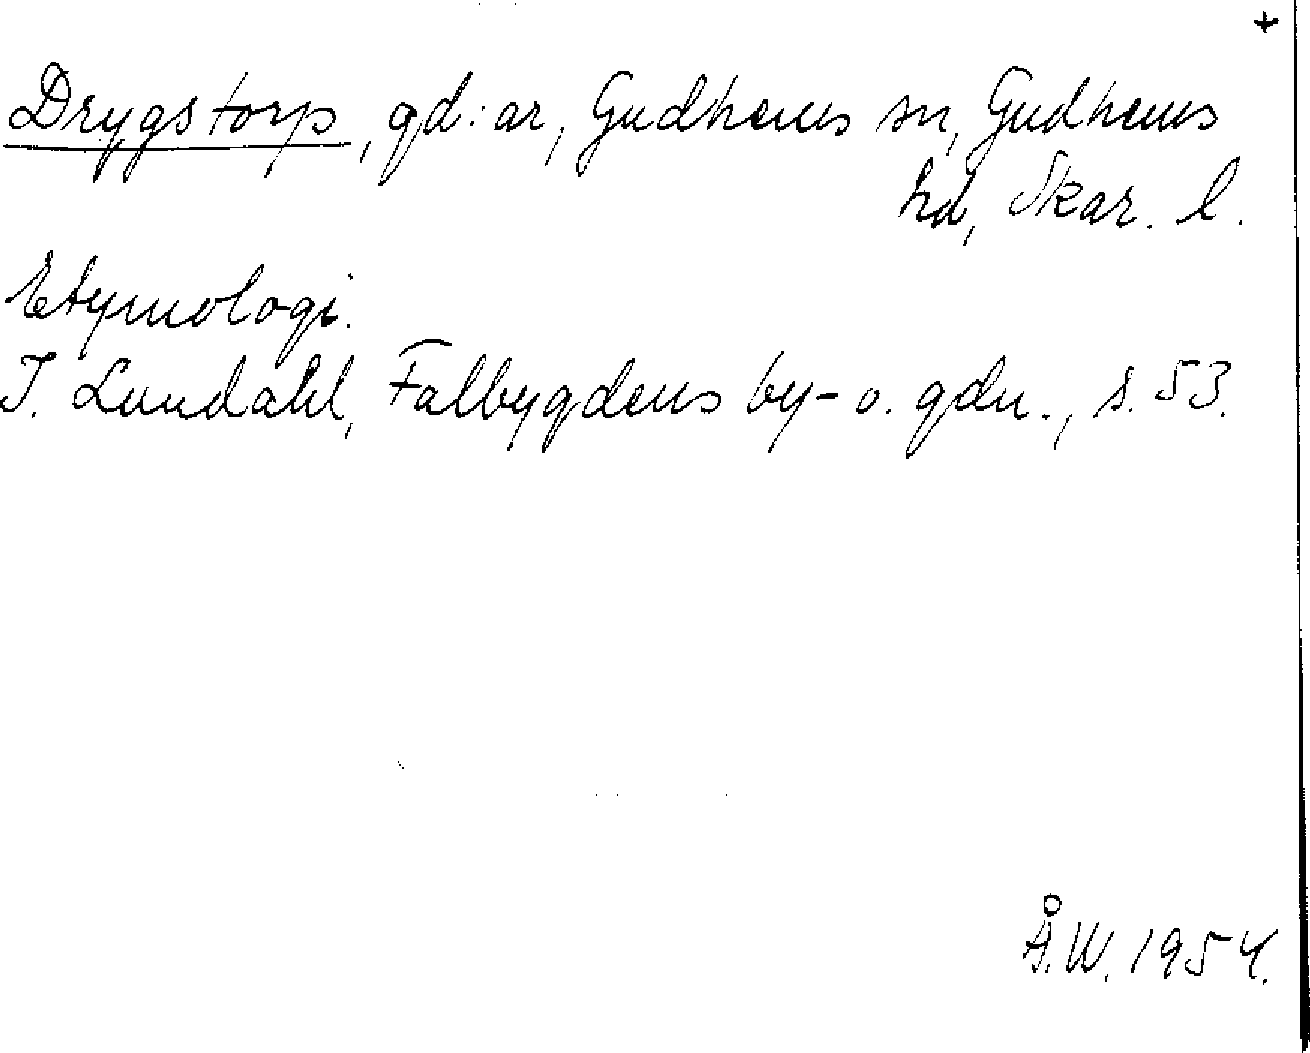 +
Drygstorp, gd:ar, Gudhems sn, Gudhems
hd, Skar. l.
Etymologi.
I. Lundahl, Falbygdens by- o. gdn., s. 53.
Å.W. 1954.